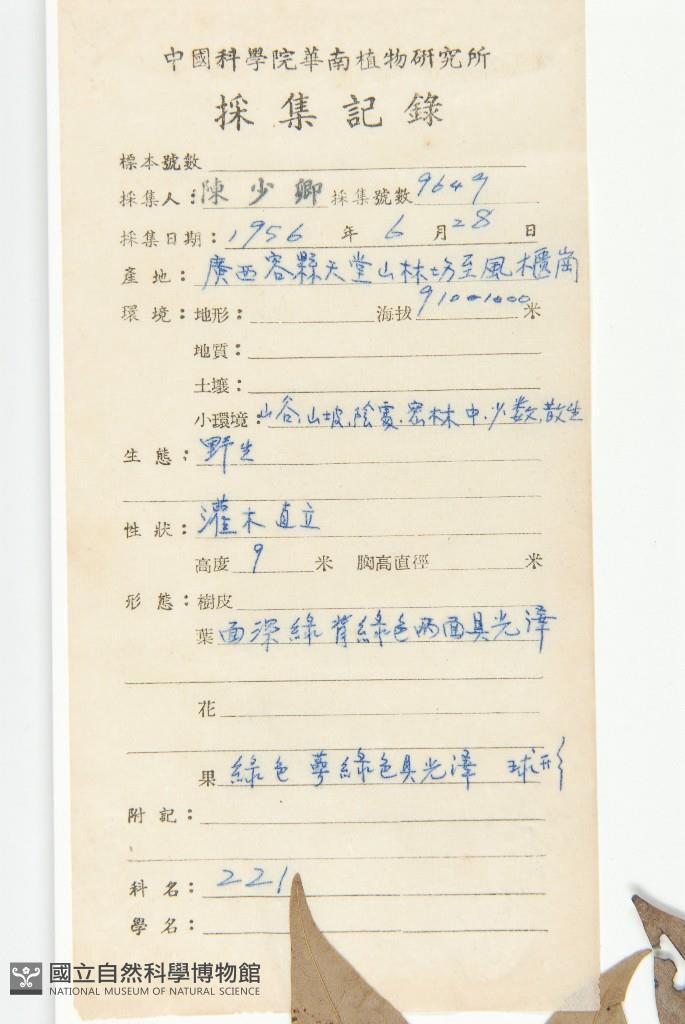 中國科學院華南植物研究所
採集記錄
標本號數
採集人：陳少卿 採集號數 9649
採集日期：1956 年 6 月 28 日
產地：廣西容縣天堂山林場至風櫃崗
環境：地形： 海拔 910-1000 米
地質：
土壤：
小環境：山谷,山坡,陰處,密林中,少数,散生
生態：野生
性狀：灌木直立
高度 9 米 胸高直徑 米
形態：樹皮
葉 面深綠背綠色兩面具光澤
花
果 綠色 萼綠色具光澤 球形
附記：
科名：221
學名：
國立自然科學博物館
NATIONAL MUSEUM OF NATURAL SCIENCE